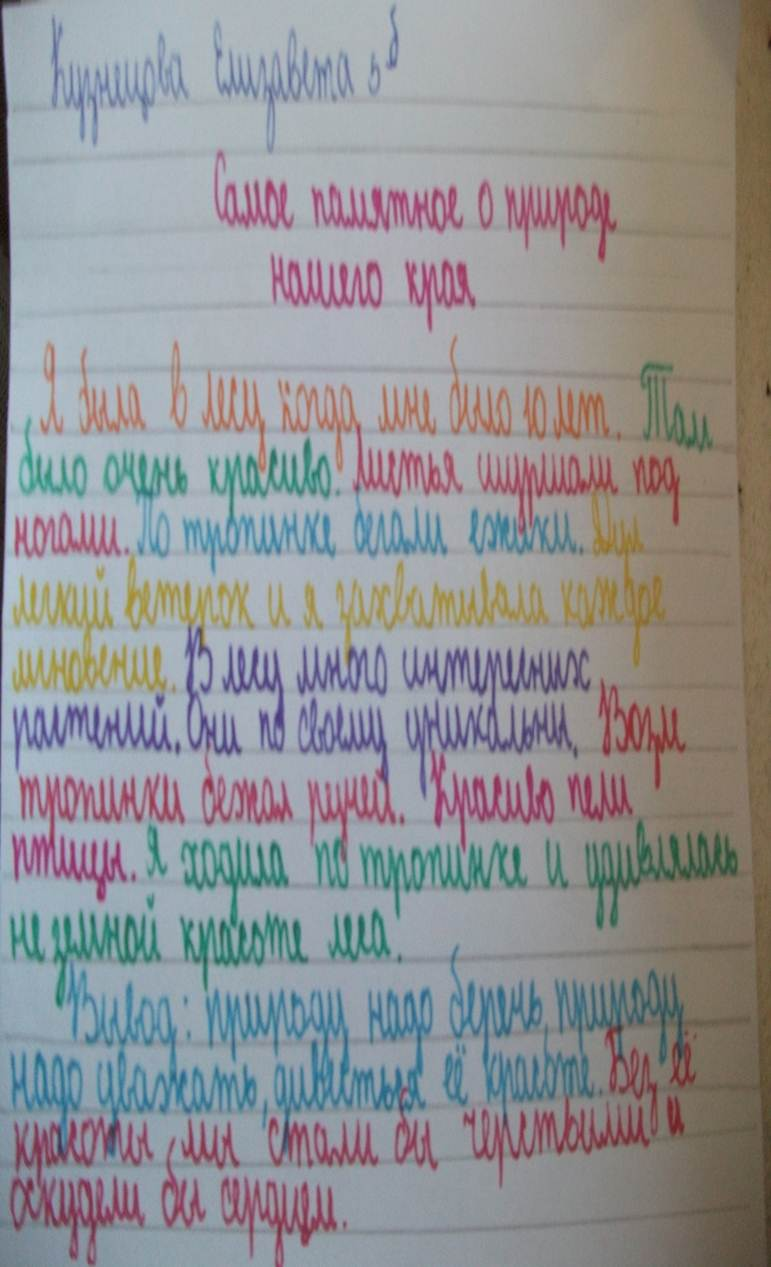 Кузнецова Елизавета 5б
Самое памятное о природе
нашего края
Я была в лесу когда мне было 10 лет. Там
было очень красиво. Листья шуршали под
ногами. По тропинке бегали ежики. Дул
легкий ветерок и я захватывала каждое
мгновение. В лесу много интересных
растений. Они по своему уникальны. Возле
тропинки бежал ручей. Красиво пели
птицы. Я ходила по тропинке и удивлялась
не земной красоте леса.
Вывод: природу надо беречь, природу
надо уважать, дивиться её красоте. Без её
красоты мы стали бы черствыми и
оскудели бы сердцем.